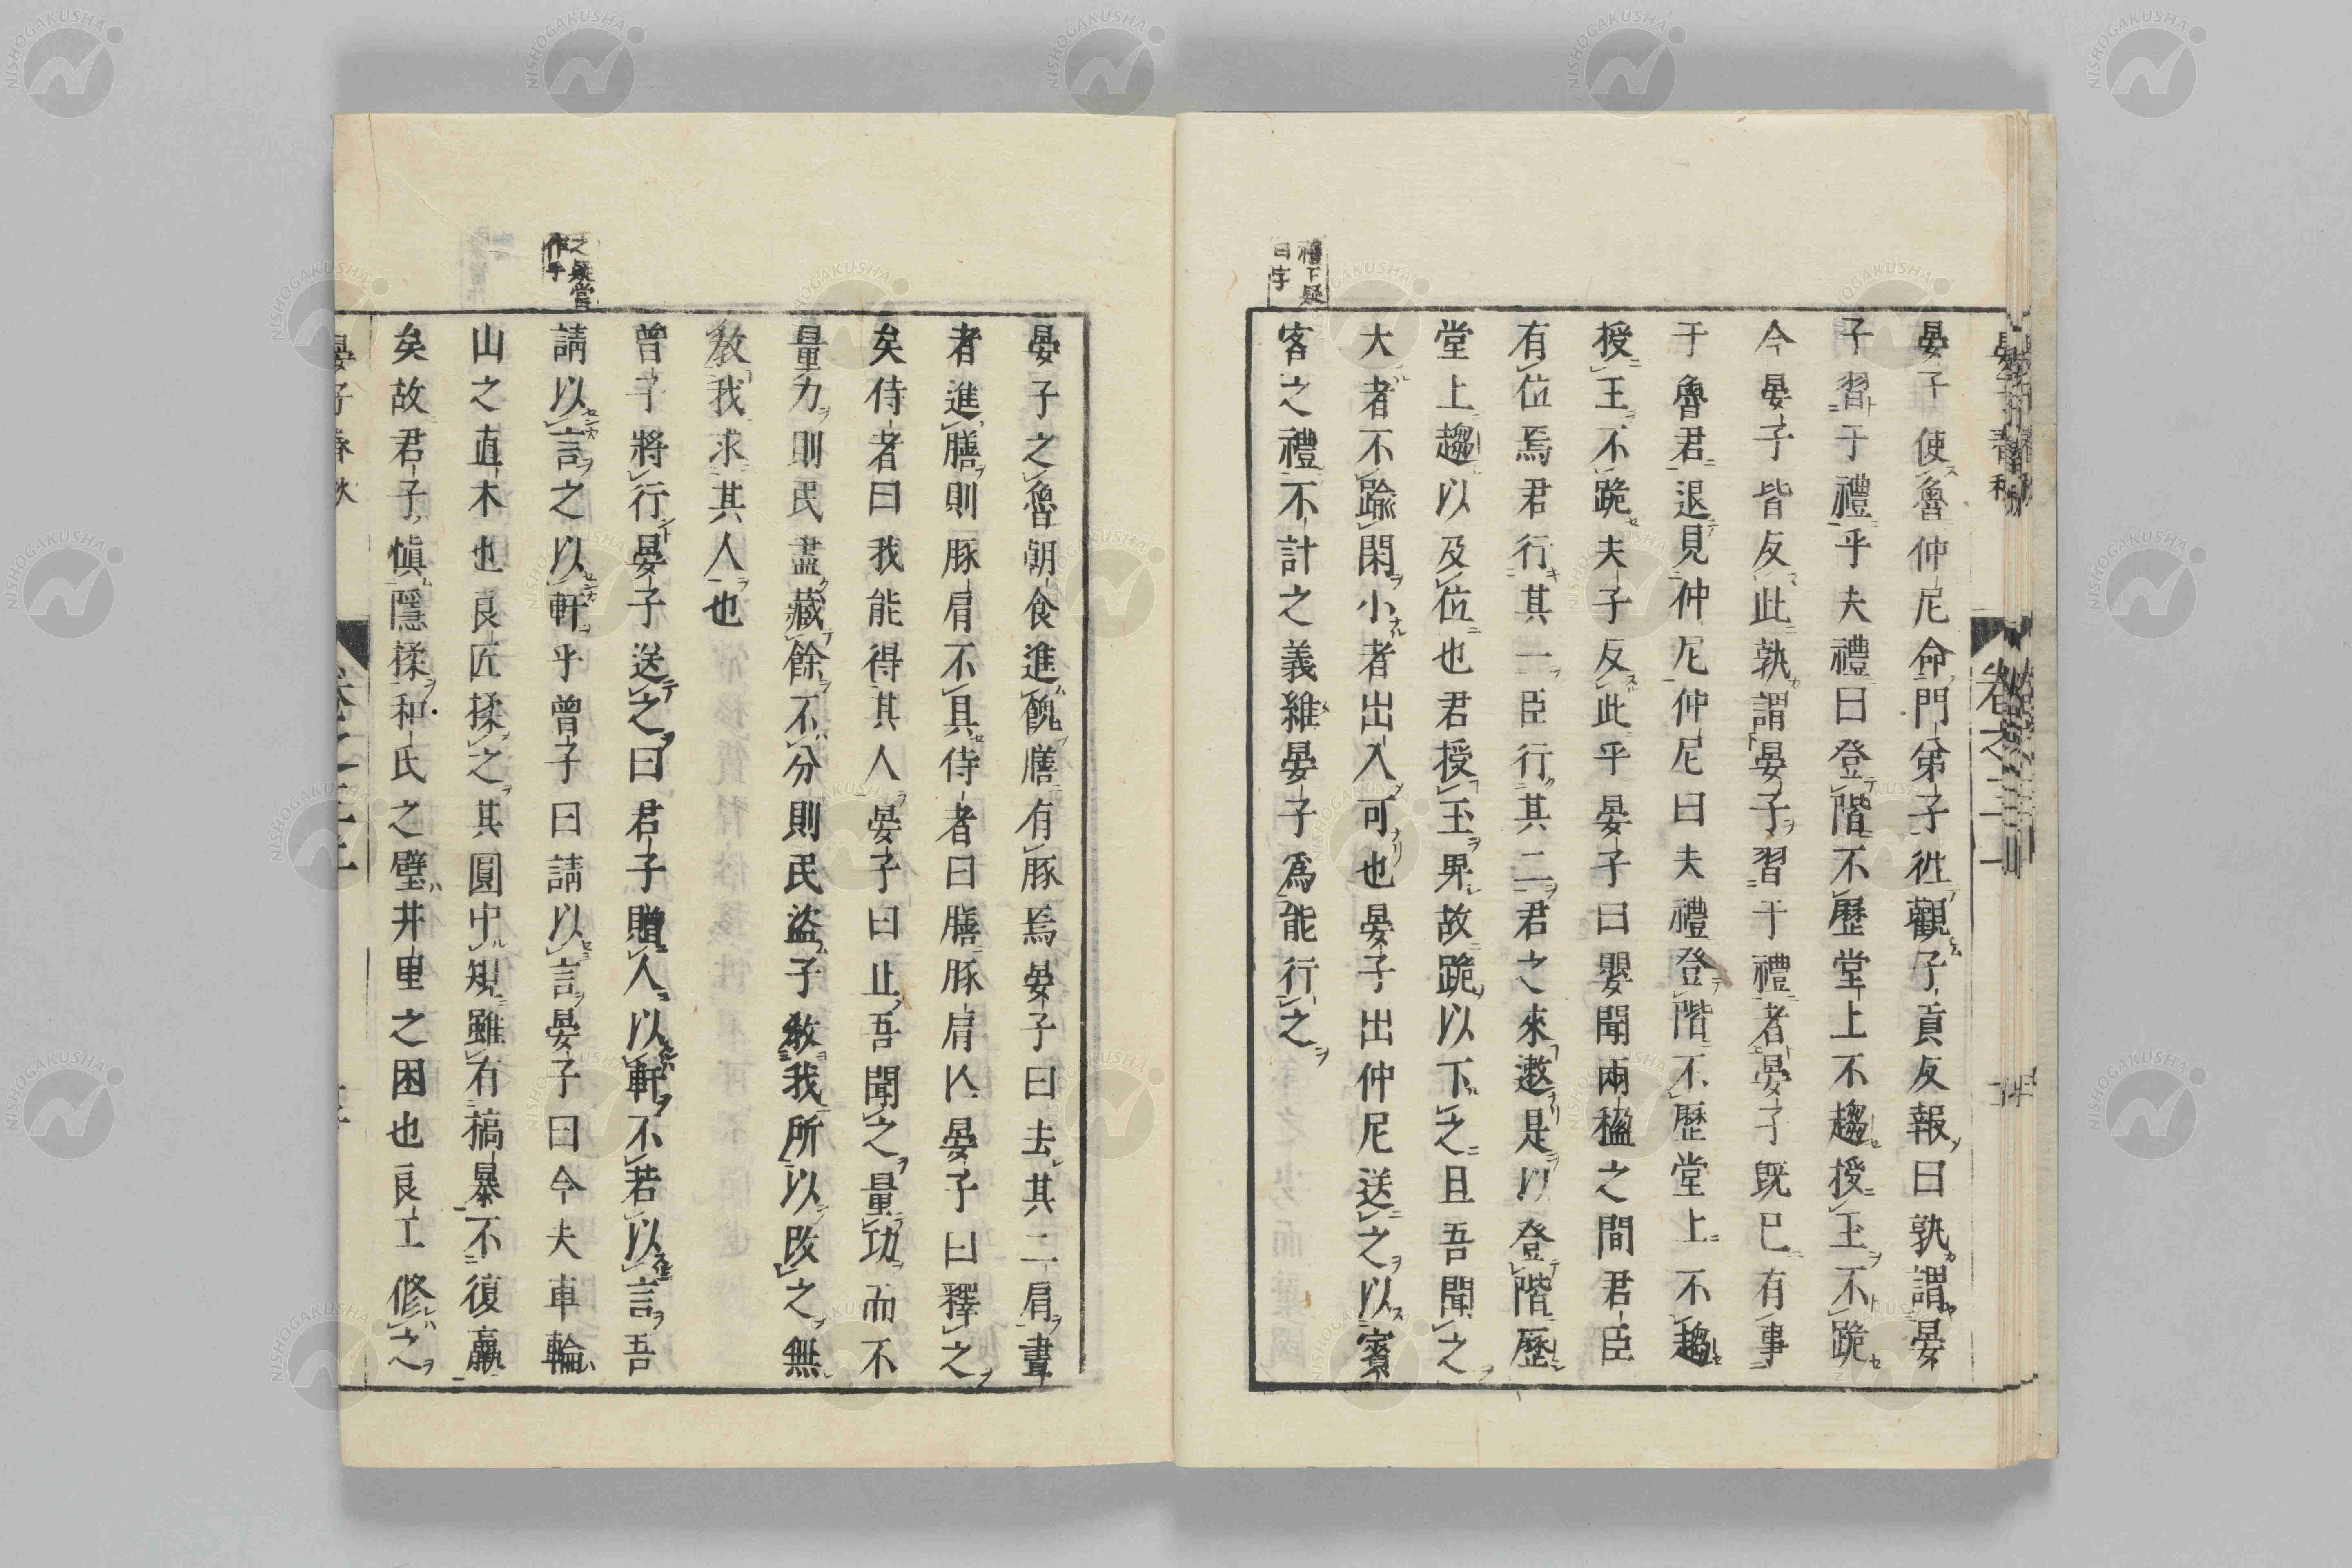 禮下疑
曰字
晏子使魯仲尼命門弟子徃觀子貢反報曰孰謂晏
子習于禮乎夫禮曰登階不歷堂上不趨授玉不跪
今晏子皆反此孰謂晏子習于禮者晏子既已有事
于魯君退見仲尼仲尼曰夫禮登階不歷堂上不趨
授王不跪夫子反此乎晏子曰嬰聞兩楹之間君臣
有位焉君行其一臣行其二君之來遬是以登階歷
堂上趨以及位也君授玉卑故跪以下之且吾聞之
大者不踰閑小者出入可也晏子出仲尼送之以賓
客之禮不計之義維晏子爲能行之
之疑當
作乎
晏子之魯朝食進餽膳有豚焉晏子曰去其二肩晝
者進膳則豚肩不具侍者曰膳豚肩亾晏子曰釋之
矣侍者曰我能得其人晏子曰止吾聞之量功而不
量力則民盡藏餘不分則民盜子敎我所以改之無
敎我求其人也
曾子將行晏子送之曰君子贈人以軒不若以言吾
請以言之以軒乎曾子曰請以言晏子曰今夫車輪
山之直木也良匠揉之其圓中規雖有槁暴不復羸
矣故君子愼隱揉和氏之璧井里之困也良工修之
晏子春秋
NISHOGAKUSHA